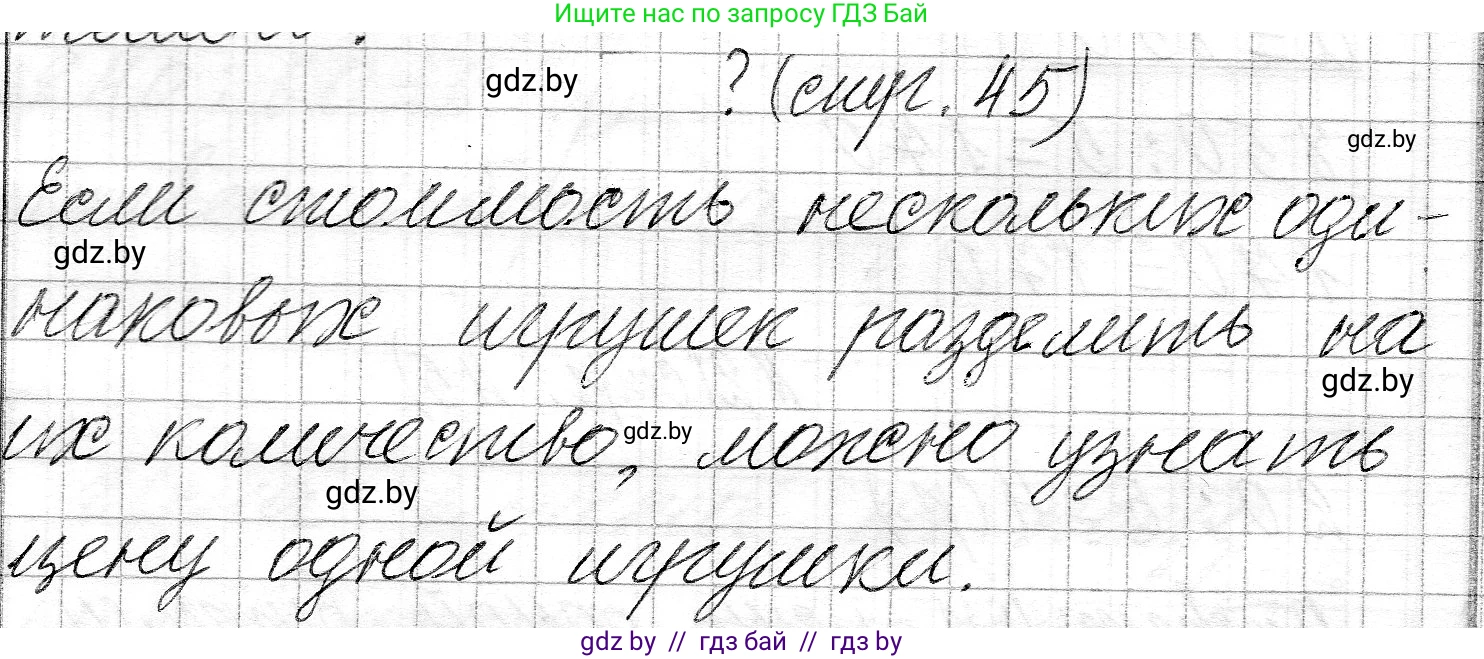 Ищите нас по запросу ГДЗ Бай
gdz.by ? (стр. 45)
gdz.by
Если стоимость нескольких оди-
gdz.by
наковых игрушек разделить на
gdz.by
их количество, gdz.by можно узнать
gdz.by
цену одной игрушки.
gdz by // гдз бай // гдз by